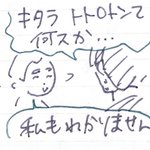 キタラ トトロトンて
何スか…
私もわかりません